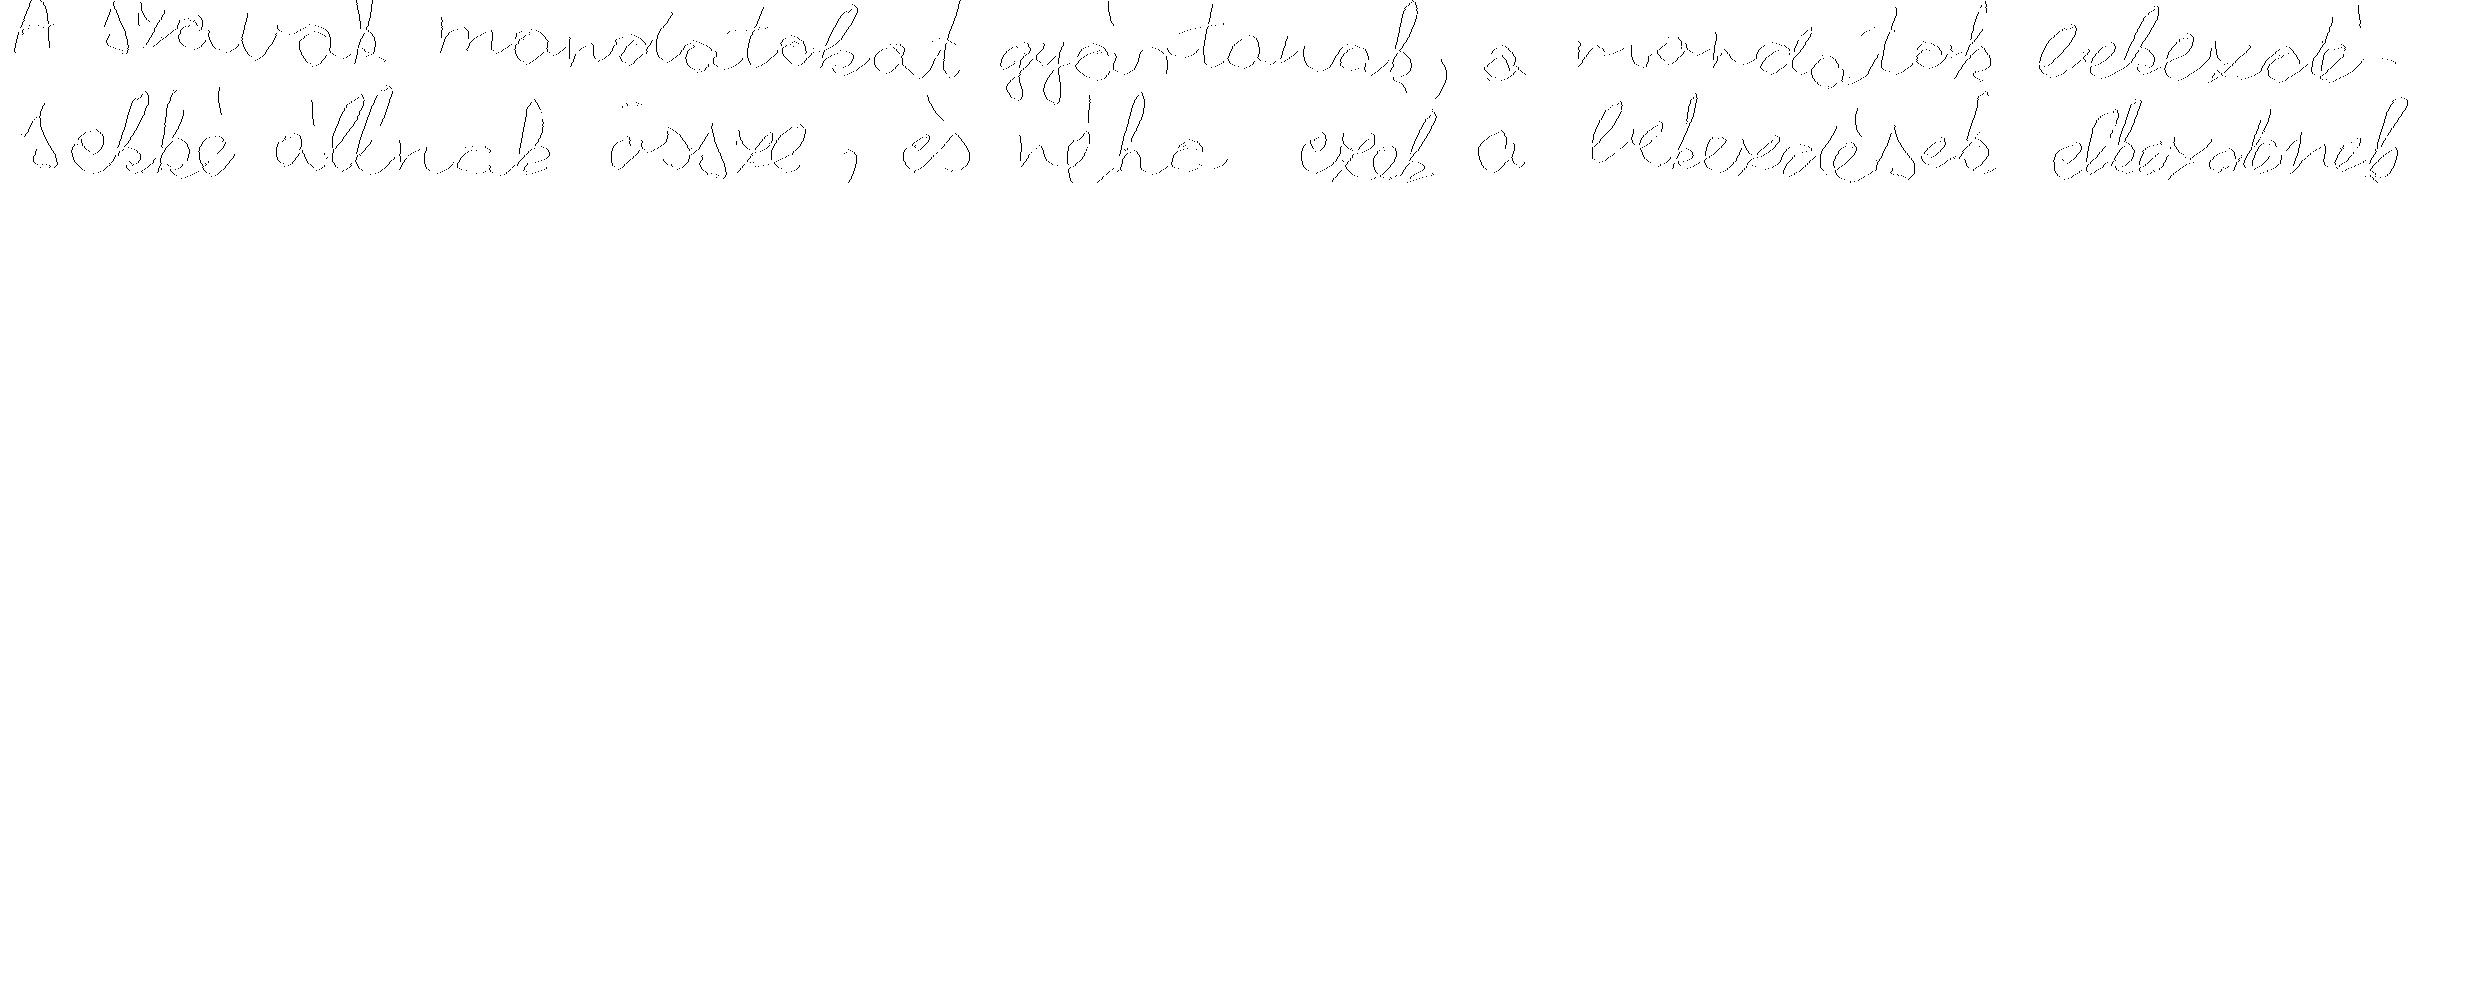 A szavak mondatokat gyártanak, a mondatok bekezdé-
sekké állnak össze, és néha ezek a bekezdések elkezdenek